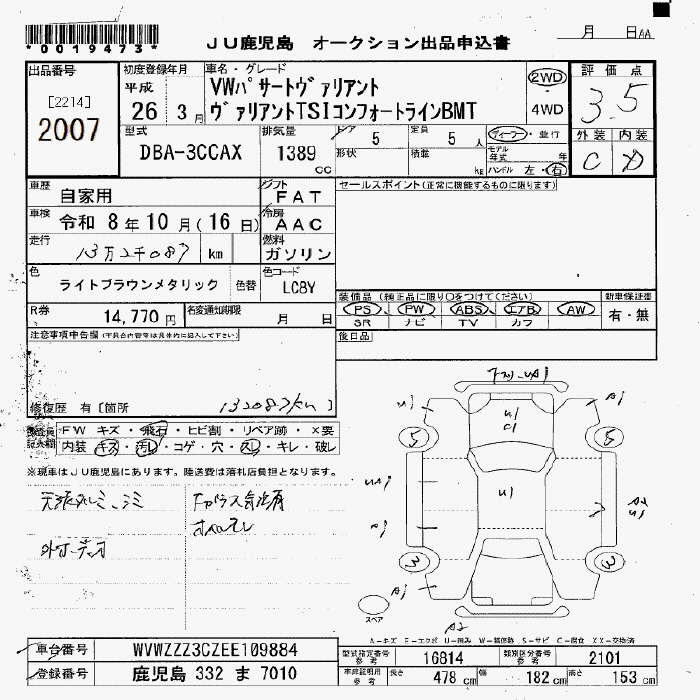 *0019473*
JU鹿児島 オークション出品申込書
月 日AA
出品番号 初度登録年月 車名・グレード 評価点
[2214] 平成 VWパサートヴァリアント 2WD 3.5
2007 26 3月 ヴァリアントTSIコンフォートラインBMT 4WD
型式 排気量 ドア 5 定員 5人 ディーラー・並行 外装 内装
DBA-3CCAX 1389cc 形状 積載 kg モデル年式 年 C D
ハンドル 左・右
車歴 自家用 シフト FAT セールスポイント(正常に機能するものに限ります)
車検 令和 8年10月(16日) 冷房 AAC
走行 13万2千087 km 燃料 ガソリン
色 ライトブラウンメタリック 色替 色コード LC8Y
装備品(純正品に限り○をつけてください) 新車保証書
R券 14,770円 名変通知期限 月 日 PS PW ABS エアB AW 有・無
SR ナビ TV カワ
注意事項申告欄(不具合内容等は具体的に記入して下さい) 後日品
修復歴 有[箇所 132087km]
FW キズ・飛石・ヒビ割・リペア跡・X要
内装 キズ・汚レ・コゲ・穴・スレ・キレ・破レ
※現車はJU鹿児島にあります。陸送費は落札店負担となります。
U1 A1
U1
5 5
U1
A1
3 3
A1 A1
スペア
A2
A-キズ E-エクボ U-凹み W-補修跡 S-サビ C-腐食 XX-交換済
車台番号 WVWZZZ3CZEE109884 型式指定番号 参考 16814 類別区分番号 参考 2101
登録番号 鹿児島 332 ま 7010 車検証明用 参考 長さ 478cm 幅 182cm 高さ 153cm